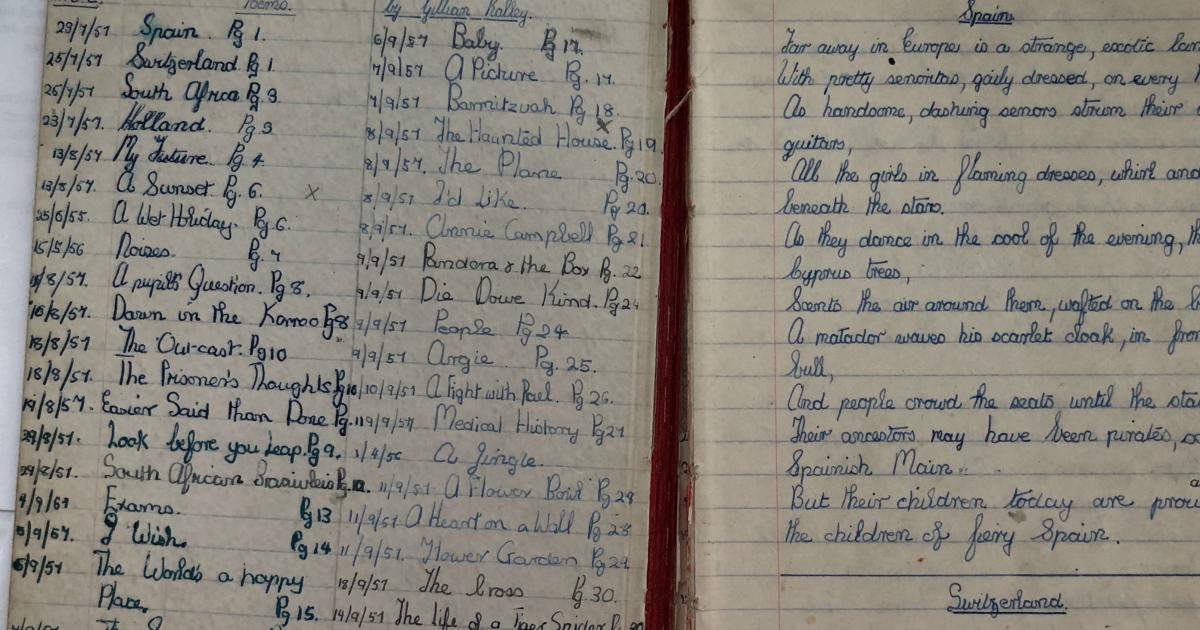 Poems.
23/7/57 Spain. Pg 1.
25/7/57 Switzerland. Pg 1
25/7/57 South Africa Pg 3.
23/7/57. Holland. Pg 3
13/8/57 My Future. Pg 4.
13/8/57. A Sunset. Pg. 6. x
25/6/55. A Wet Holiday. Pg 6.
15/5/56 Noises. Pg. 7
/8/57. A pupil's Question. Pg 8.
16/8/57. Dawn in the Karroo Pg 8
18/8/57 The Out-cast. Pg 10
18/8/57. The Prisoner's Thoughts Pg 10
19/8/57. Easier Said than Done Pg. 11
29/8/57. Look before you Leap. Pg 9.
29/8/57. South African Braaivleis Pg. 12.
4/9/57 Exams. Pg 13
5/9/57. I Wish. Pg 14
6/9/57 The World's a happy
Place. Pg 15.
by Gillian Kalley.
6/9/57 Baby. Pg 17.
7/9/57 A Picture Pg. 17.
7/9/57 Barmitzvah Pg 18.
8/9/57 The Haunted House. x Pg 19.
8/9/57. The Plane Pg. 20.
8/9/57 I'd Like. Pg 20.
8/9/57. Annie Campbell Pg 21.
9/9/57 Pandora & the Box Pg. 22
9/9/57 Die Dowe Kind. Pg 24
9/9/57 People Pg 24
9/9/57 Angie. Pg. 25.
10/9/57 A Fight with Paul. Pg 26.
9/9/57 Medical History Pg 27
1/4/56 A Jingle.
11/9/57 A Flower Bowl Pg 28
11/9/57 A Heart on a Wall Pg 28
11/9/57. Flower Garden Pg 29
13/9/57 The Cross Pg. 30.
14/9/57 The life of a Tiger Snider
Spain
Far away in Europe is a strange, exotic
With pretty senoritas, gaily dressed, on every
As handsome, dashing senors strum their
guitars,
All the girls in flaming dresses, whirl and
beneath the stars.
As they dance in the cool of the evening,
cyprus trees,
Scents the air around them, wafted on the
A matador waves his scarlet cloak, in
bull,
And people crowd the seats until the
Their ancestors may have been pirates,
Spainish Main.
But their children today are
the children of fiery Spain.
Switzerland.